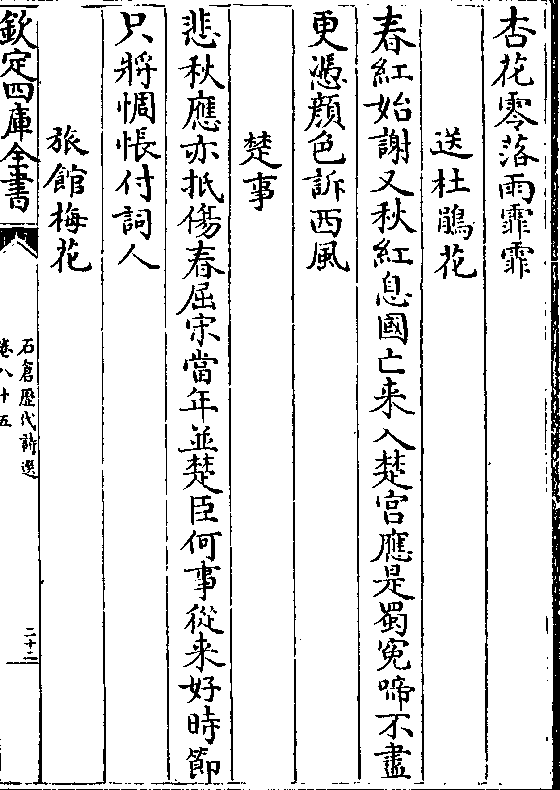 杏花零落雨霏霏
送杜鵑花
春紅始謝又秋紅息國亡来入楚宫應是蜀冤啼不盡
更憑顔色訴西風
楚事
悲秋應亦抵傷春屈宋當年並楚臣何事從来好時節
只將惆悵付詞人
旅館梅花
欽定四庫全書
石倉歷代詩選
卷八十五
二十二